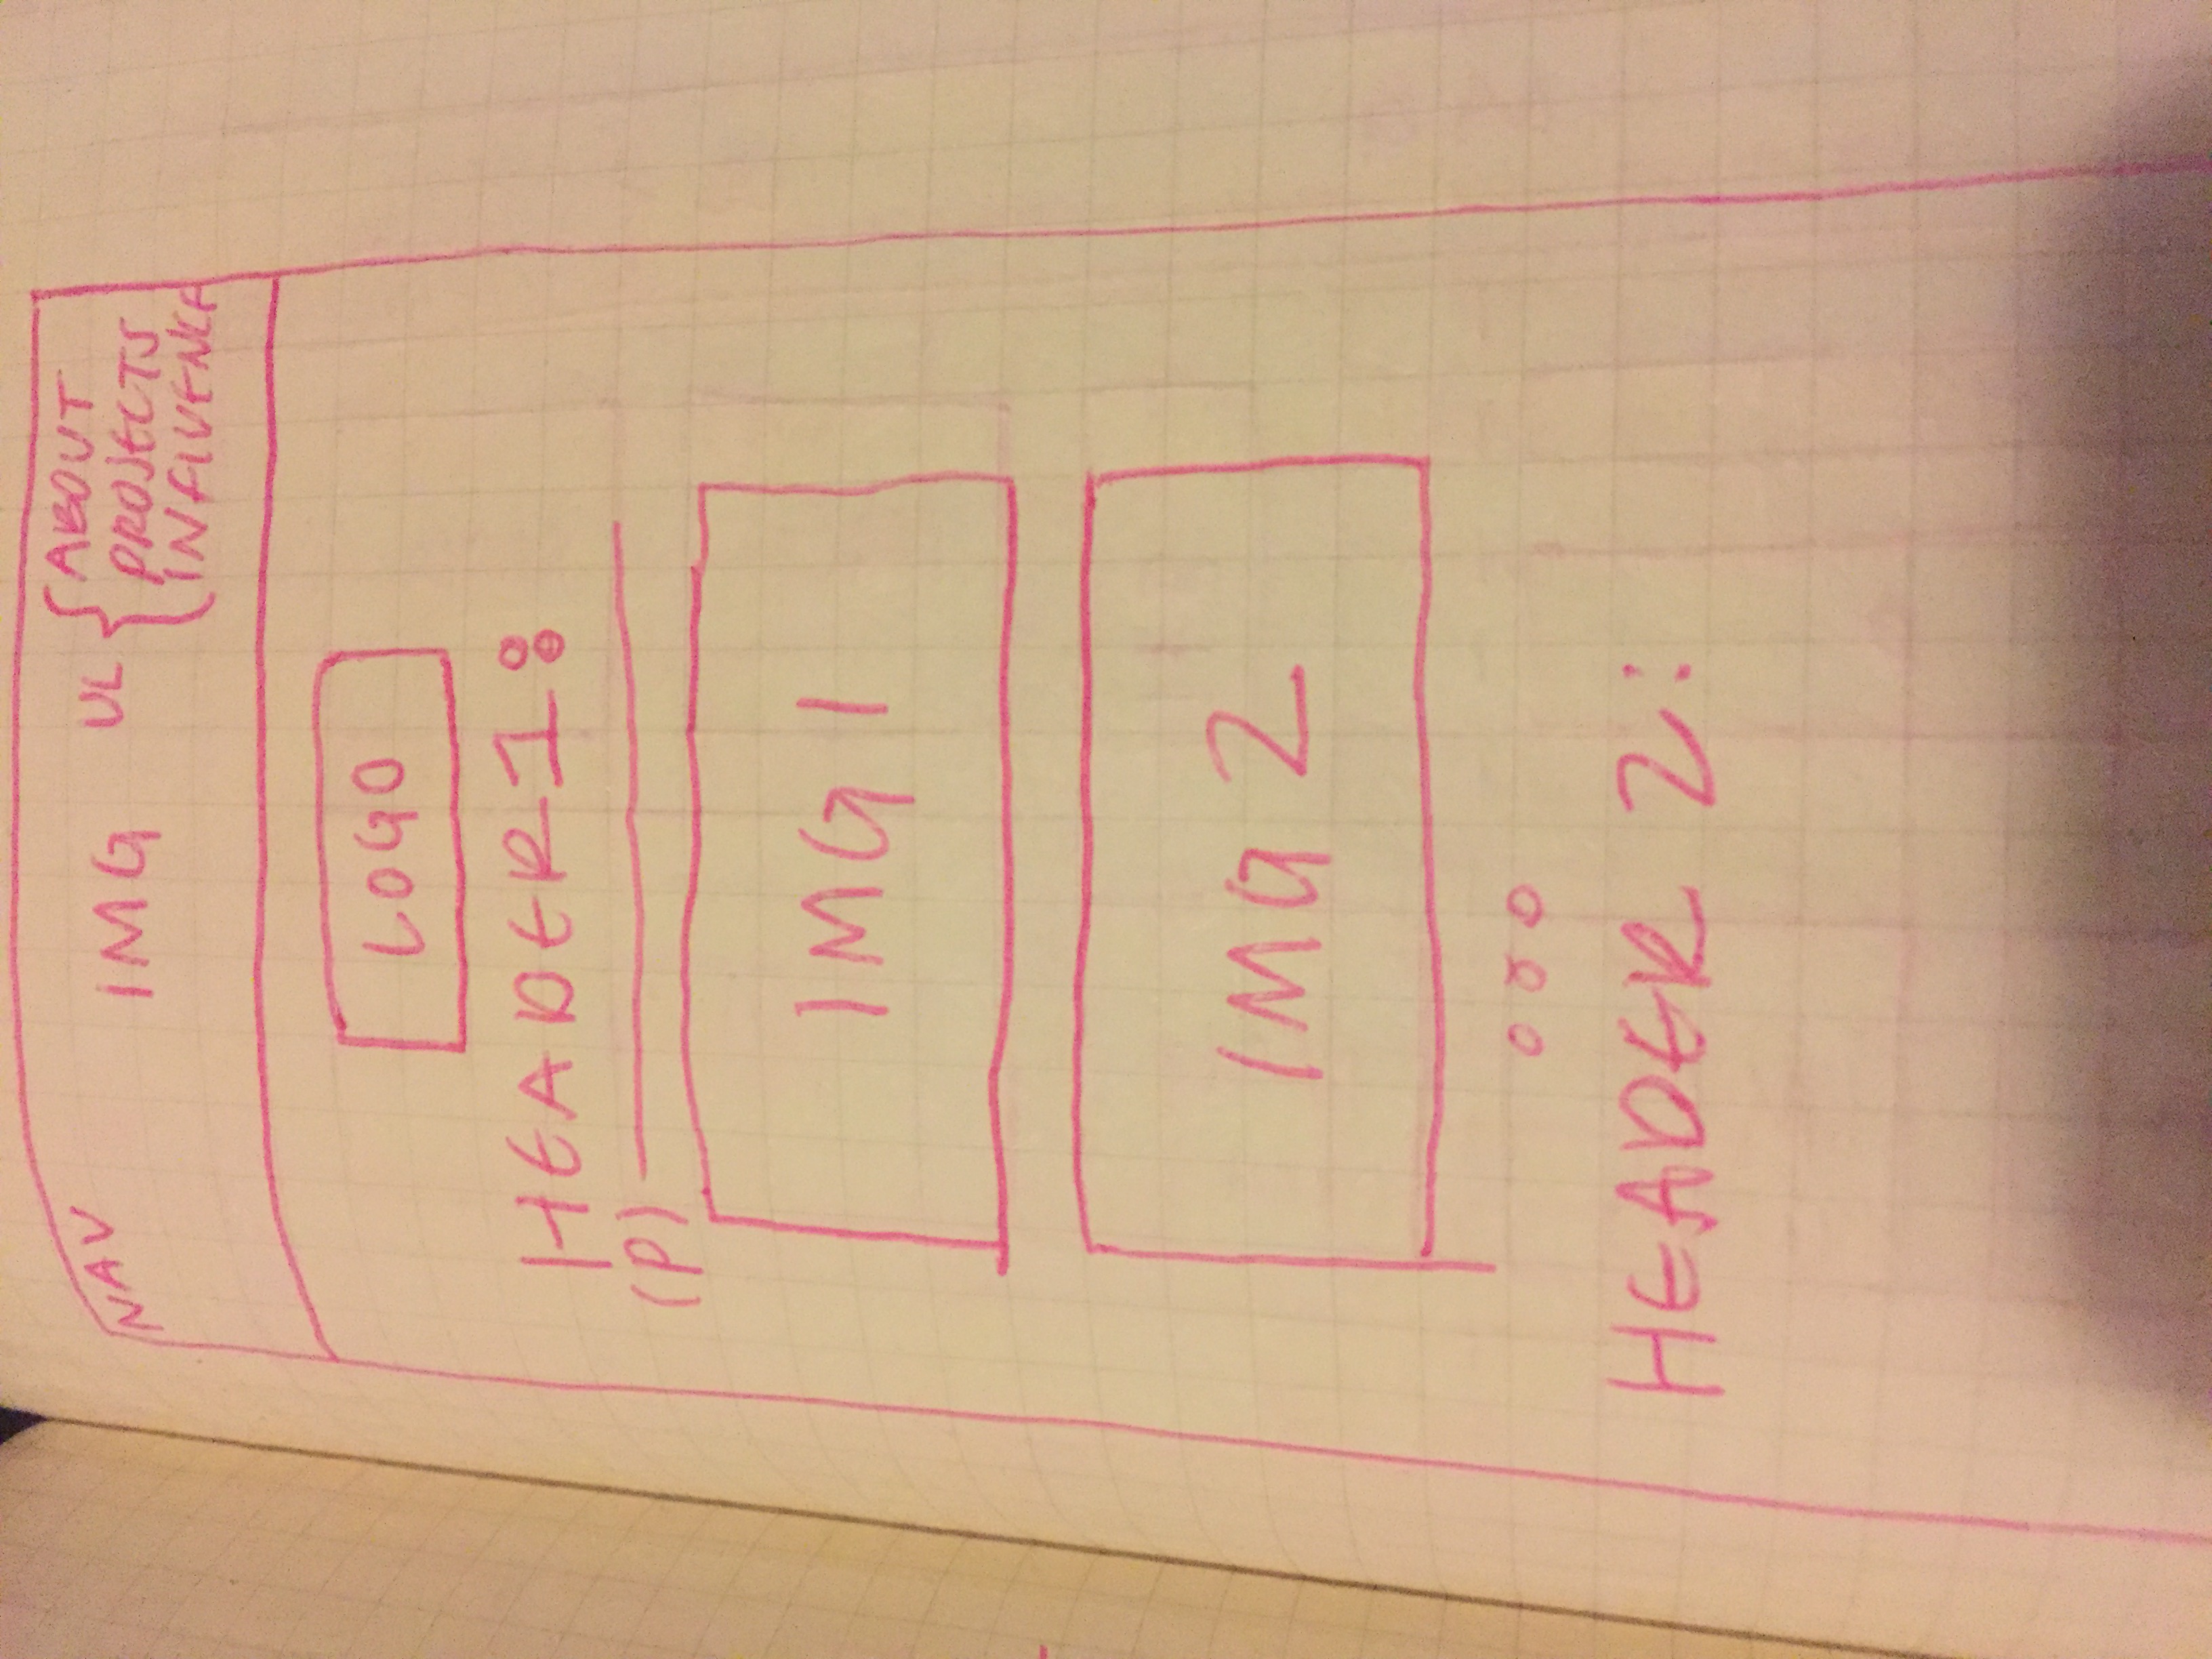 NAV IMG UL { ABOUT
PROJECTS
INFLUENCE
LOGO
HEADER 1:
(P)
IMG 1
IMG 2
HEADER 2: